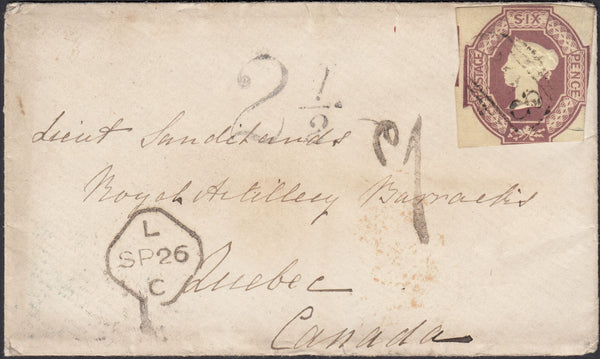 SIX
POSTAGE
PENCE
2 1/2
Lieut Sandilands
Royal Artillery Barracks
Quebec
Canada
L
SP 26
C